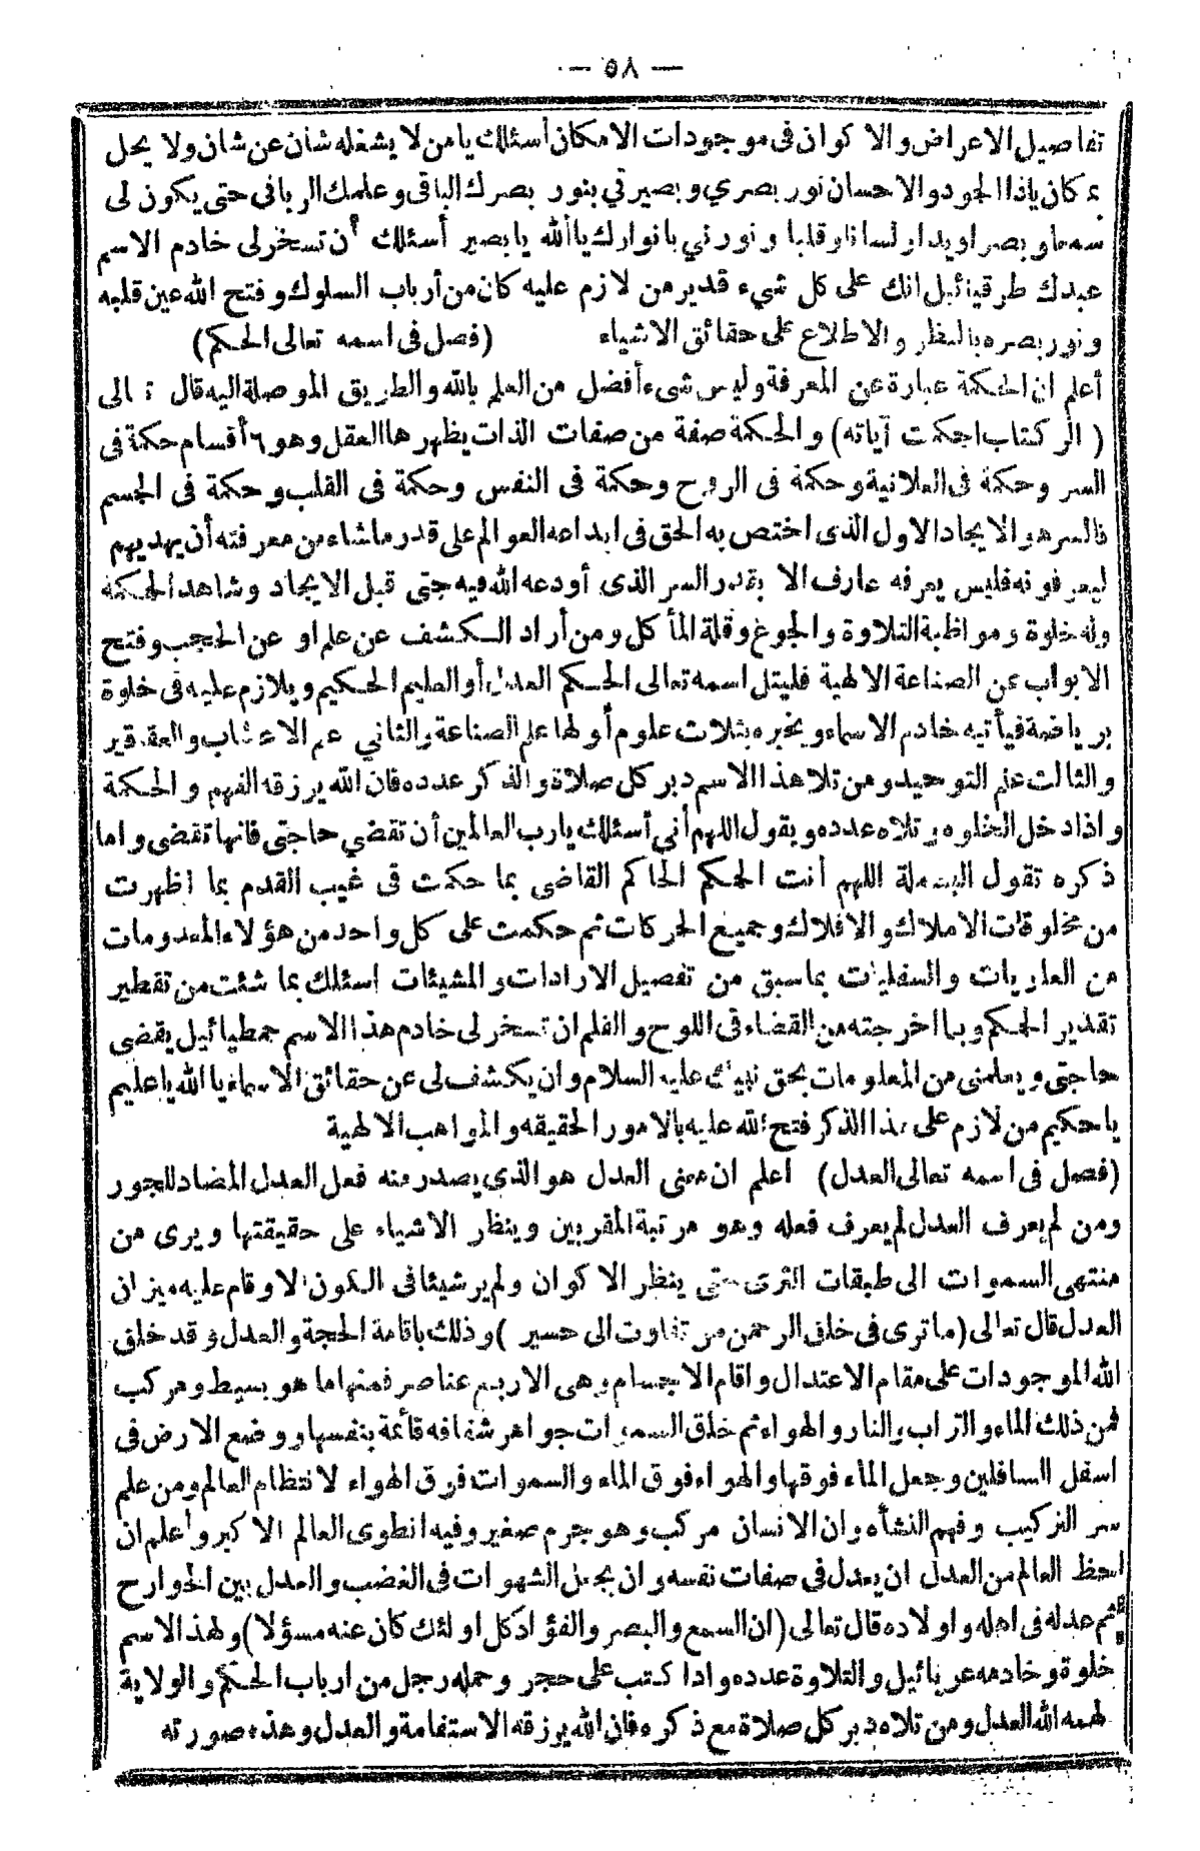 — ٥٨ —
تفاصيل الاعراض والا كوان فى موجودات الامكان أسئلك يامن لا يشغله شأن عن شان ولا يحل
بمكان ياذا الجود والاحسان نور بصري وبصيرتي بنور بصرك الباقى وعلمك الربانى حتى يكون لى
سمعا وبصرا ويدا ولسانا وقلبا ونورني بانوارك يا ألله يا بصير أسئلك أن تسخر لى خادم الاسم
عبدك طرقيائيل انك على كل شيء قدير من لازم عليه كان من أرباب السلوك وفتح الله عين قلبه
ونور بصره بالنظر والاطلاع على حقائق الاشياء (فصل فى اسمه تعالى الحكم)
أعلم ان الحكمة عبارة عن المعرفة وليس شىء أفضل من العلم بالله والطريق الموصلة اليه قال تعالى
( الر كتاب احكمت آياته) والحكمة صفة من صفات الذات يظهرها العقل وهو ٦ أقسام حكمة فى
السر وحكمة فى العلانية وحكمة فى الروح وحكمة فى النفس وحكمة فى القلب وحكمة فى الجسم
فالسر هو الايجاد الاول الذى اختص به الحق فى ابداعه العوالم على قدر ماشاء من معرفته أن يهديهم
ليعرفونه فليس يعرفه عارف الا بقدر السر الذى أودعه الله فيه حتى قبل الايجاد وشاهد الحكمة
وله خلوة ومواظبة التلاوة والجوع وقلة المأكل ومن أراد الكشف عن علم او عن الحجب وفتح
الابواب عن الصناعة الالهية فليتل اسمه تعالى الحكم العدل أو العليم الحكيم ويلازم عليه فى خلوة
برياضة فيأتيه خادم الاسماء ويخبره بثلاث علوم أولها علم الصناعة والثاني علم الاعشاب والعقاقير
والثالث علم التوحيد ومن تلا هذا الاسم دبر كل صلاة والذكر عدده فان الله يرزقه الفهم والحكمة
واذا دخل الخلوه وتلاه عدده ويقول اللهم أني أسئلك يارب العالمين أن تقضي حاجتى فانها تقضى واما
ذكره تقول البسملة اللهم أنت الحكم الحاكم القاضى بما حكمت فى غيب القدم بما اظهرت
من مخلوقات الاملاك والافلاك وجميع الحركات ثم حكمت على كل واحد من هؤلاء المعدومات
من العلويات والسفليات بما سبق من تفصيل الارادات والمشيئات اسئلك بما شئت من تقطير
تقدير الحكم وبما اخرجته من القضاء فى اللوح والقلم ان تسخر لى خادم هذا الاسم جمطيائيل يقضى
حاجتى ويعلمنى من المعلومات بحق نبيك عليه السلام وان يكشف لى عن حقائق الاسماء يا الله يا عليم
يا حكيم من لازم على هذا الذكر فتح الله عليه بالامور الحقيقه والمواهب الالهية
(فصل فى اسمه تعالى العدل) اعلم ان معنى العدل هو الذي يصدر منه فعل العدل المضاد للجور
ومن لم يعرف العدل لم يعرف فعله وهو مرتبة المقربين وينظر الاشياء على حقيقتها ويرى من
منتهى السموات الى طبقات الثرى حتى ينظر الاكوان ولم ير شيئا فى الكون الا وقام عليه ميزان
العدل قال تعالى (ما ترى فى خلق الرحمن من تفاوت الى حسير) وذلك باقامة الحجة والعدل وقد خلق
الله الموجودات على مقام الاعتدال واقام الاجسام وهى الاربع عناصر فمنها ما هو بسيط ومركب
فمن ذلك الماء والتراب والنار والهواء ثم خلق السموات جواهر شفافه قائمة بنفسها ووضع الارض فى
اسفل السافلين وجعل الماء فوقها والهواء فوق الماء والسموات فوق الهواء لانتظام العالم ومن علم
سر التركيب وفهم النشأه وان الانسان مركب وهو جرم صغير وفيه انطوى العالم الاكبر وأعلم ان
لحظ العالم من العدل ان يعدل فى صفات نفسه وان يجعل الشهوات فى الغضب والعدل بين الجوارح
ثم عدله فى اهله واولاده قال تعالى (ان السمع والبصر والفؤاد كل اولئك كان عنه مسؤلا) ولهذا الاسم
خلوة وخادمه عريائيل والتلاوة عدده واذا كتب على حجر وحمله رجل من ارباب الحكم والولاية
لهمه الله العدل ومن تلاه دبر كل صلاة مع ذكره فان الله يرزقه الاستقامة والعدل وهذه صورته